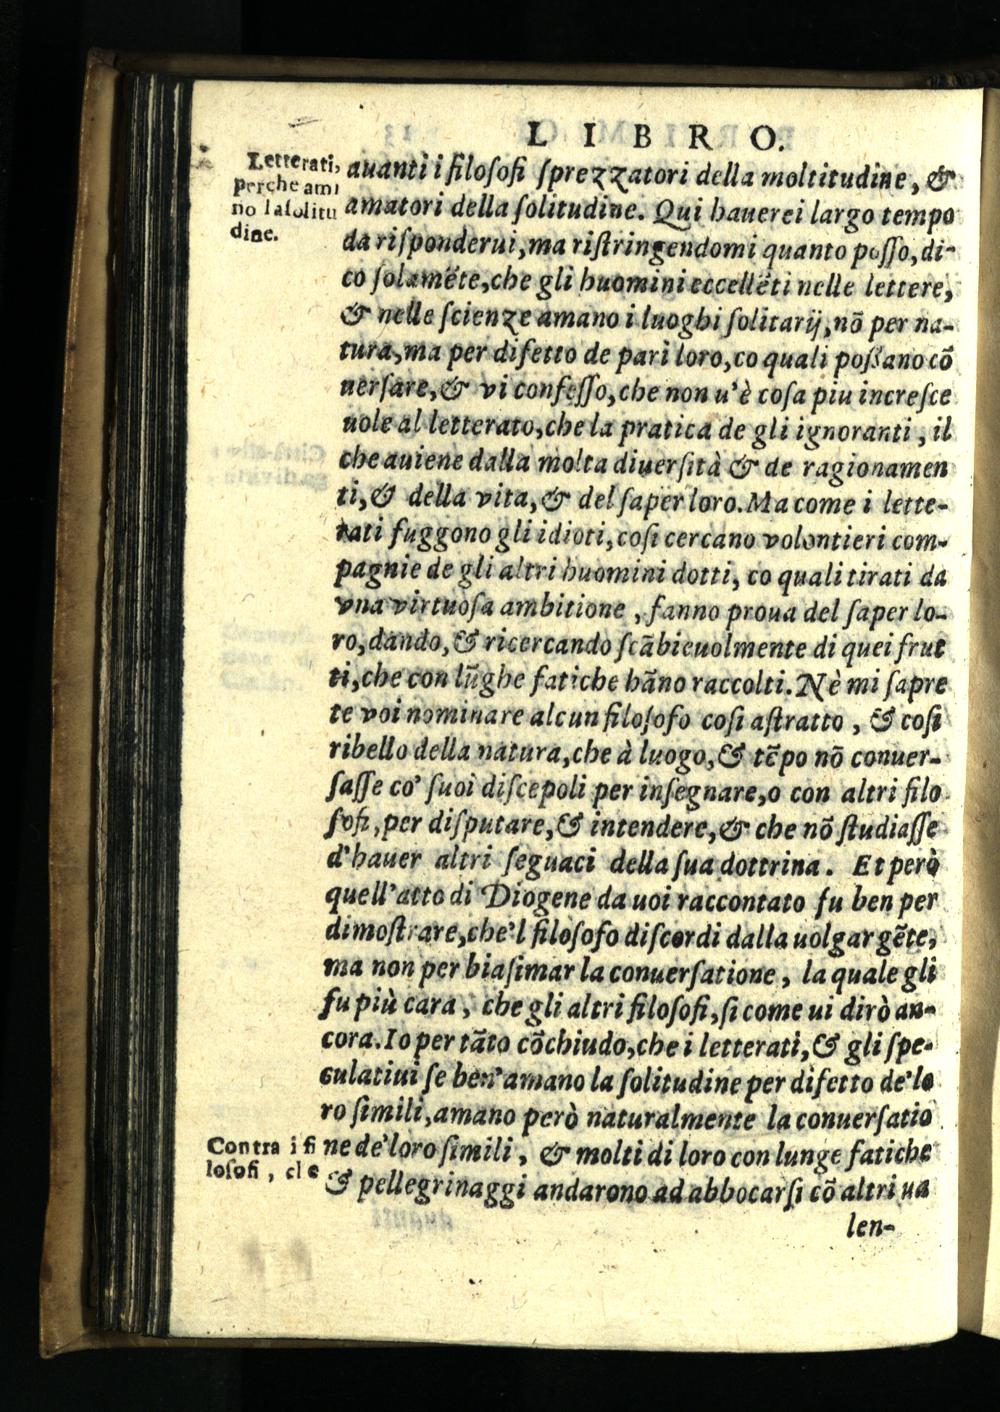 LIBRO.
Letterati,
perche ama
no la solitu
dine.
auanti i filosofi sprezzatori della moltitudine, &
amatori della solitudine. Qui hauerei largo tempo
da risponderui, ma ristringendomi quanto posso, di-
co solamẽte, che gli huomini eccellẽti nelle lettere,
& nelle scienze amano i luoghi solitarij, nõ per na-
tura, ma per difetto de pari loro, co quali possano cõ
uersare, & vi confesso, che non u'è cosa piu incresce
uole al letterato, che la pratica de gli ignoranti, il
che auiene dalla molta diuersità & de ragionamen
ti, & della vita, & del saper loro. Ma come i lette-
rati fuggono gli idioti, cosi cercano volontieri com-
pagnie de gli altri huomini dotti, co quali tirati da
vna virtuosa ambitione, fanno proua del saper lo-
ro, dando, & ricercando scãbieuolmente di quei frut
ti, che con lũghe fatiche hãno raccolti. Nè mi sapre
te voi nominare alcun filosofo cosi astratto, & cosi
ribello della natura, che à luogo, & tẽpo nõ conuer-
sasse co' suoi discepoli per insegnare, o con altri filo
sofi, per disputare, & intendere, & che nõ studiasse
d'hauer altri seguaci della sua dottrina. Et però
quell'atto di Diogene da uoi raccontato fu ben per
dimostrare, che'l filosofo discordi dalla uolgar gẽte,
ma non per biasimar la conuersatione, la quale gli
fu più cara, che gli altri filosofi, si come ui dirò an-
cora. Io per tãto cõchiudo, che i letterati, & gli spe-
culatiui se ben'amano la solitudine per difetto de'lo
ro simili, amano però naturalmente la conuersatio
ne de'loro simili, & molti di loro con lunge fatiche
& pellegrinaggi andarono ad abboccarsi cõ altri ua
Contra i fi
losofi, che
len-